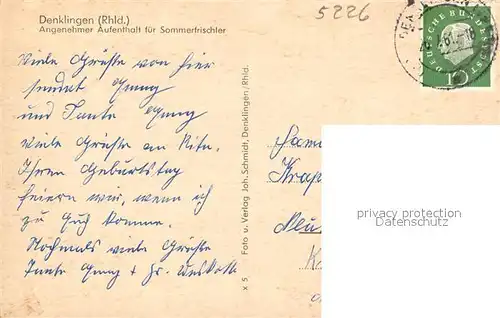 Denklingen (Rhld.)
Angenehmer Aufenthalt für Sommerfrischler
5226
DEUTSCHE BUNDESPOST
10
Viele Grüße von hier
sendet
und Tante
viele Grüße an Rita.
Ihren Geburtstag
feiern wir, wenn ich
zu Euch komme.
Nochmals viele Grüße
Tante
Foto u. Verlag Joh. Schmidt, Denklingen/Rhld.
x 5
Fam
privacy protection
Datenschutz